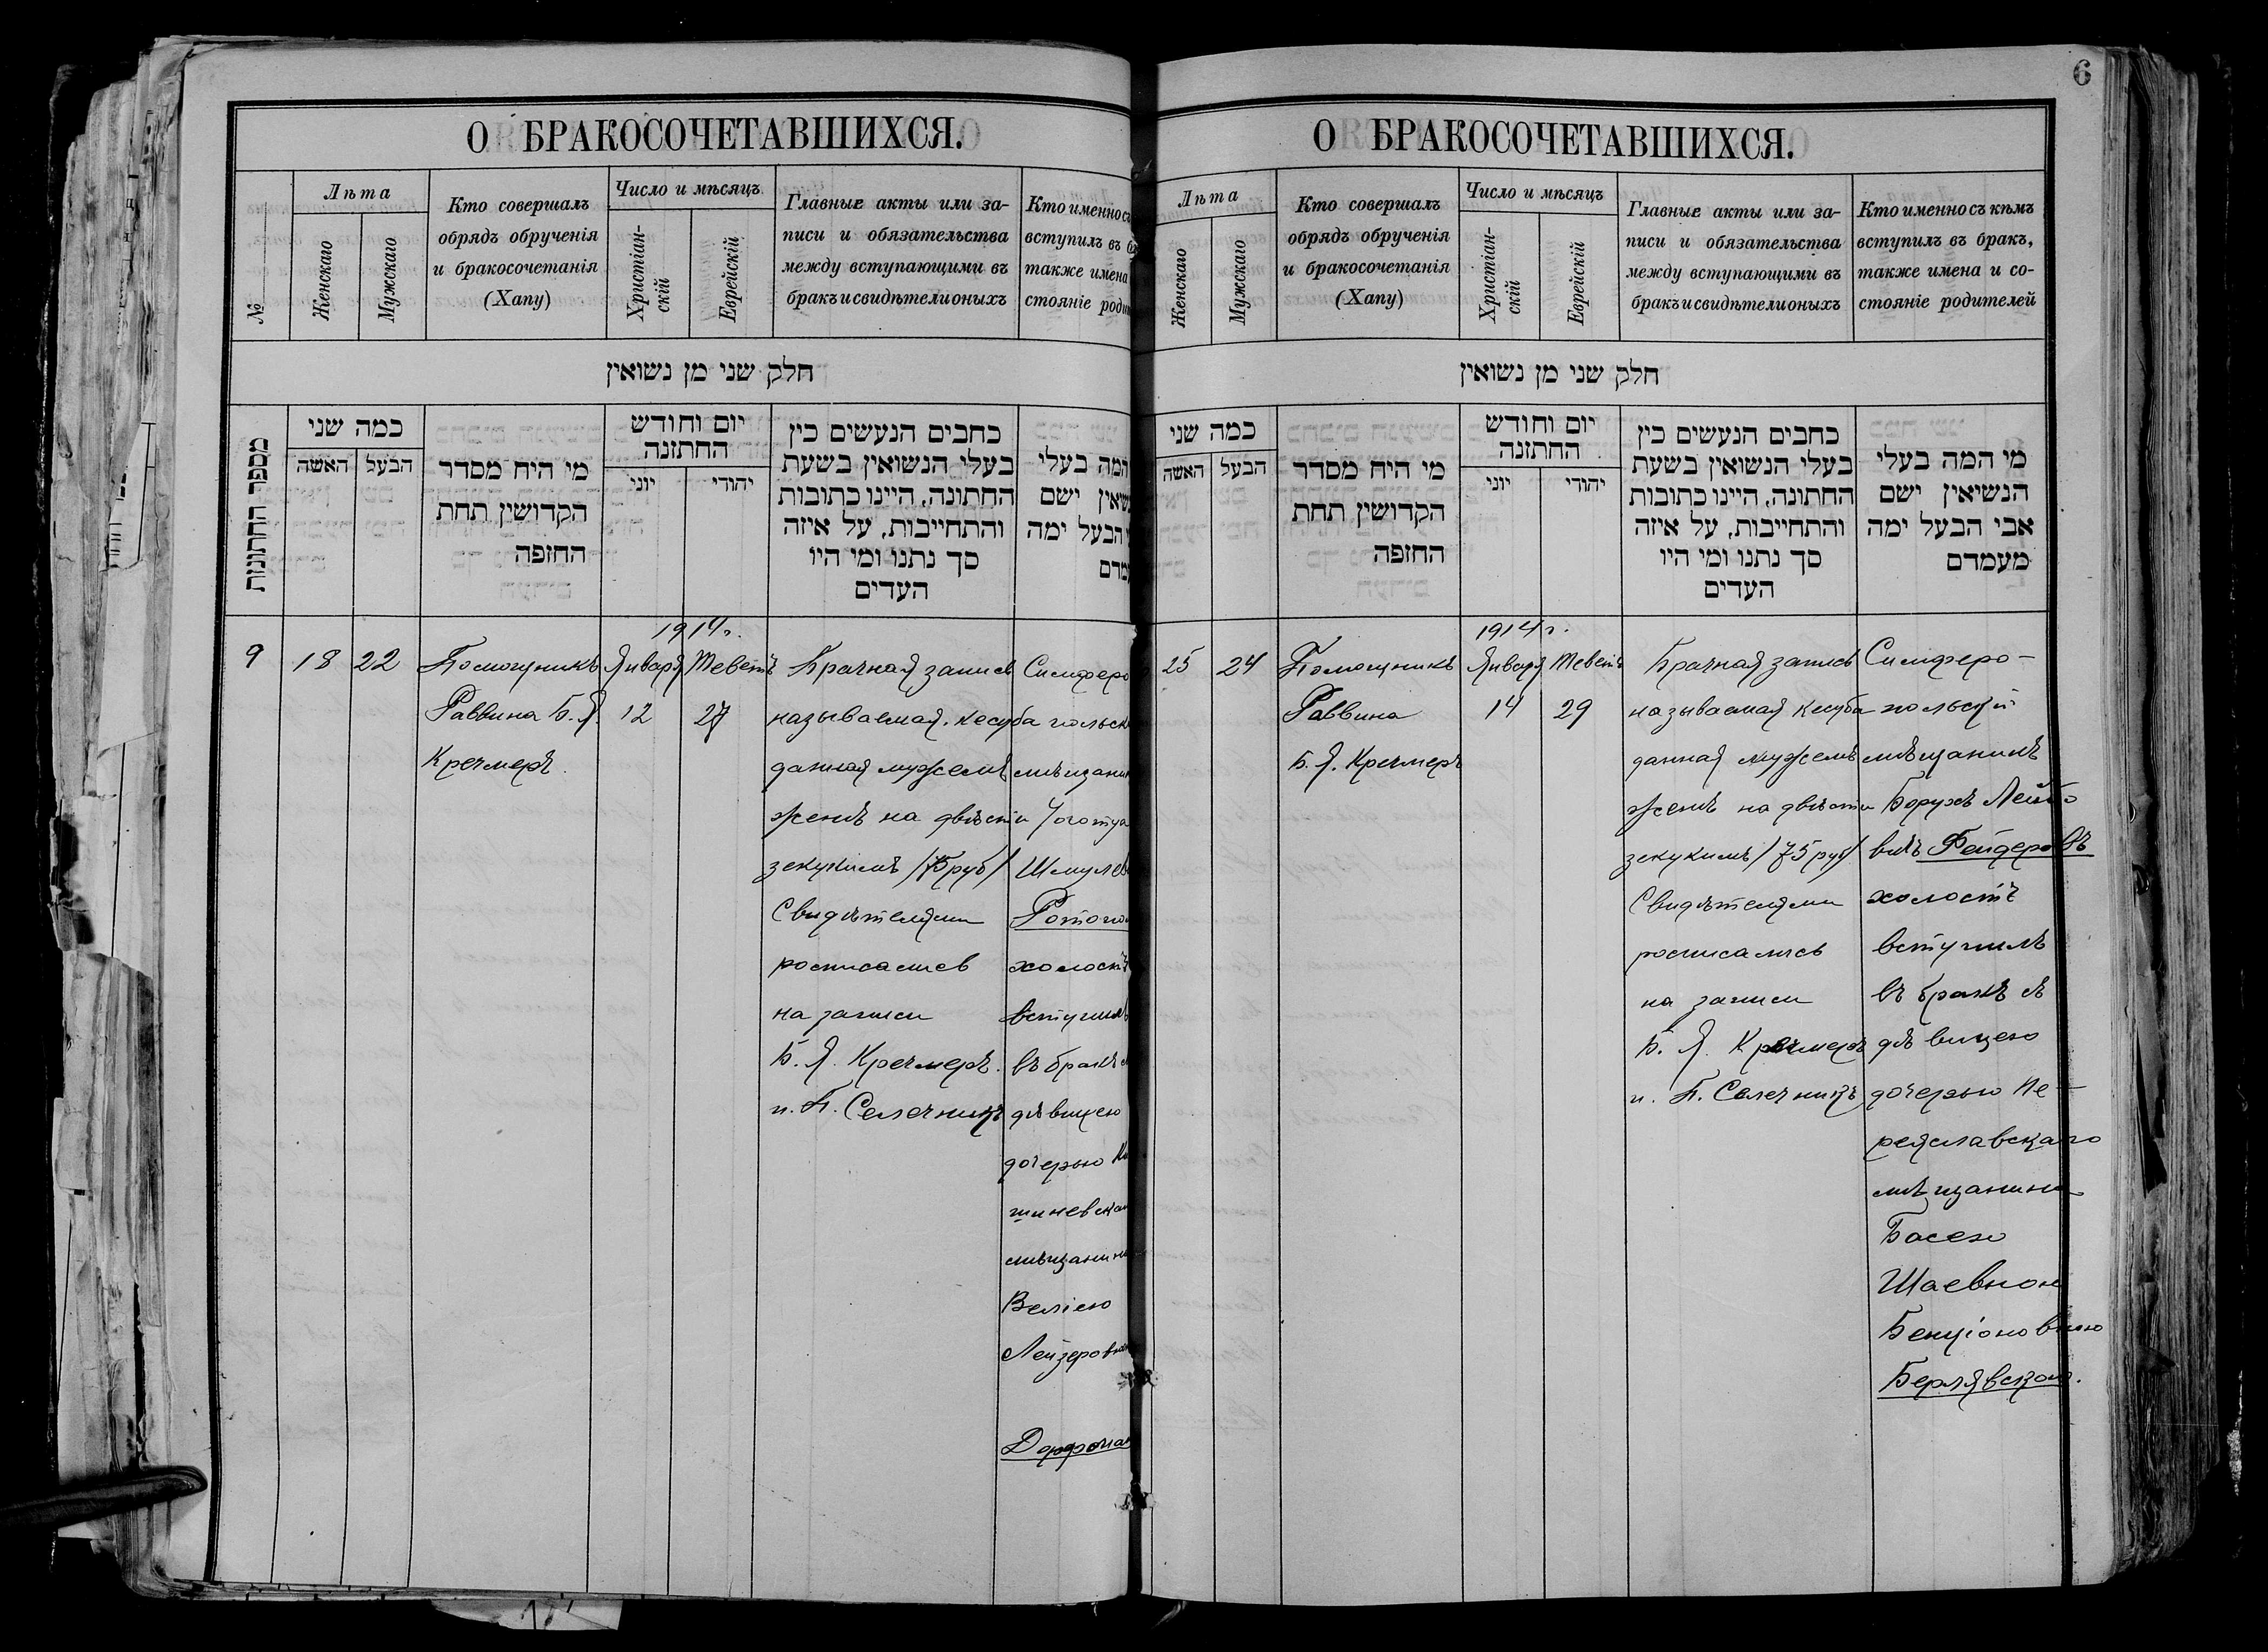 6
О БРАКОСОЧЕТАВШИХСЯ.
№
Лѣта
Женскаго
Мужскаго
Кто совершалъ
обрядъ обрученія
и бракосочетанія
(Хапу)
Число и мѣсяцъ
Христіан-
скій
Еврейскій
Главные акты или за-
писи и обязательства
между вступающими въ
бракъ и свидѣтели оныхъ
Кто именно съ
вступилъ въ
также имена
стояніе
חלק שני מן נשואין
מספר החתונות
כמה שני
האשה
הבעל
מי היח מסדר
הקדושין תחת
החופה
יום וחודש
החתונה
יוני
יהודי
כחבים הנעשים כין
בעלי הנשואין בשעת
החתונה, היינו כתובות
והתחייבות, על איזה
סך נתנו ומי היו
העדים
המה בעלי
ישם
הבעל ימה
9
18
22
Помощникъ
Раввина Б. Я.
Кречмеръ
1914 г.
Января
12
Теветъ
27
Брачная запись
называемая кесуба
данная мужемъ
женѣ на двѣсти
зекукимъ /75 руб/
Свидѣтелями
росписались
на записи
Б. Я. Кречмеръ.
и П. Селечникъ
Симферо
польск
мѣщанин
Шмулев
холостъ
вступилъ
въ бракъ
дѣвицею
дочерью Ки
шиневска
мѣщанин
Веліею
Лейзеровн
О БРАКОСОЧЕТАВШИХСЯ.
Лѣта
Женскаго
Мужскаго
Кто совершалъ
обрядъ обрученія
и бракосочетанія
(Хапу)
Число и мѣсяцъ
Христіан-
скій
Еврейскій
Главные акты или за-
писи и обязательства
между вступающими въ
бракъ и свидѣтели оныхъ
Кто именно съ кѣмъ
вступилъ въ бракъ,
также имена и со-
стояніе родителей
חלק שני מן נשואין
כמה שני
האשה
הבעל
מי היח מסדר
הקדושין תחת
החופה
יום וחודש
החתונה
יוני
יהודי
כחבים הנעשים כין
בעלי הנשואין בשעת
החתונה, היינו כתובות
והתחייבות, על איזה
סך נתנו ומי היו
העדים
מי המה בעלי
הנשיאין ישם
אבי הבעל ימה
מעמדם
25
24
Помощникъ
Раввина
Б. Я. Кречмеръ
1914 г.
Января
14
Теветъ
29
Брачная запись
называемая кесуба
данная мужемъ
женѣ на двѣсти
зекукимъ /75 руб/
Свидѣтелями
росписались
на записи
Б. Я. Кречмеръ
и П. Селечникъ
Симферо-
польскій
мѣщанинъ
Борухъ Лейбо
вичъ Фейдеровъ
холостъ
вступилъ
въ бракъ съ
дѣвицею
дочерью Пе-
реяславскаго
мѣщанина
Басею
Шаевною
Бенціоновною
Берлявскою.